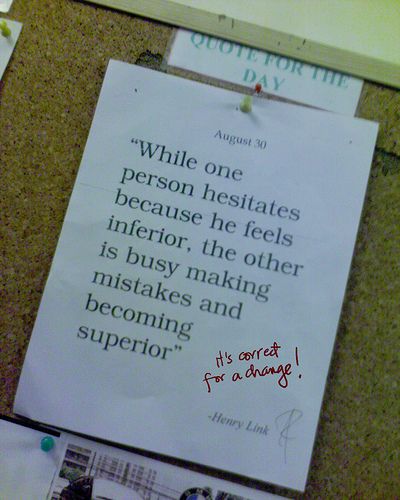 QUOTE FOR THE
DAY
August 30
“While one
person hesitates
because he feels
inferior, the other
is busy making
mistakes and
becoming
superior”
it's correct
for a change!
-Henry Link